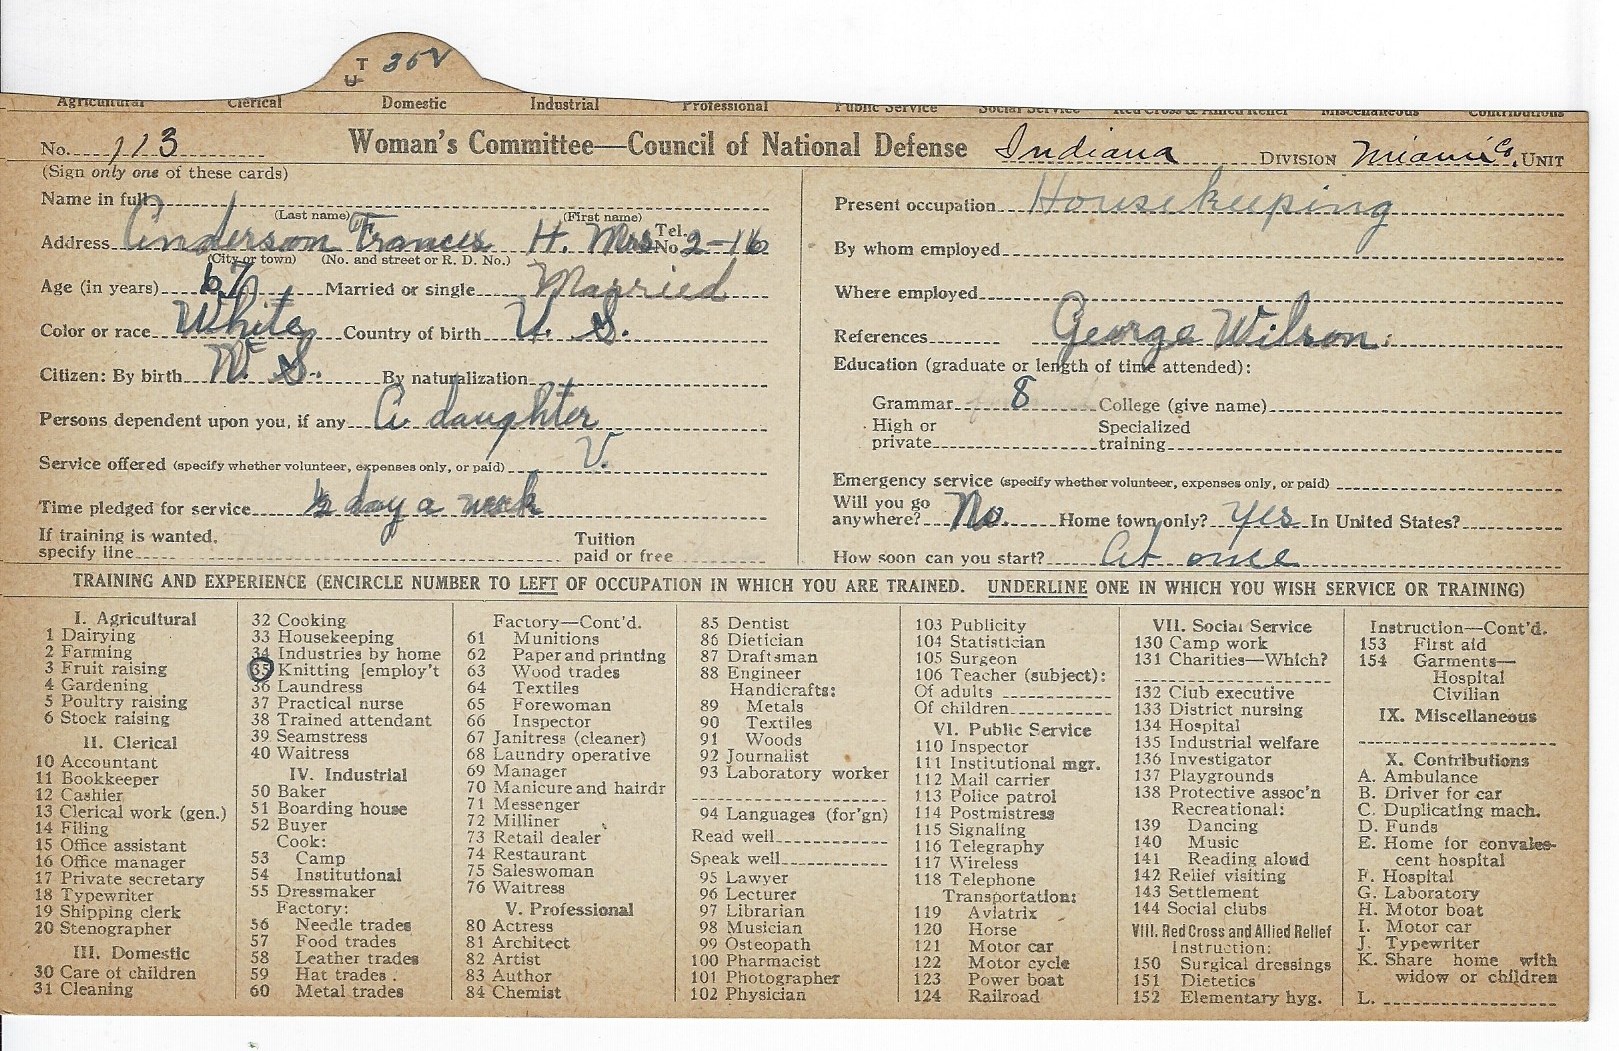 T
U 35V
Agricultural Clerical Domestic Industrial Professional Public Service Social Service Red Cross & Allied Relief Miscellaneous Contributions
No. 113 Woman's Committee—Council of National Defense Indiana DIVISION Miami Co. UNIT
(Sign only one of these cards)
Name in full
(Last name) (First name)
Address Anderson Frances H. Mrs Tel. No. 2-16
(City or town) (No. and street or R. D. No.)
Age (in years) 67 Married or single Married
Color or race White Country of birth U. S.
Citizen: By birth U. S. By naturalization
Persons dependent upon you, if any A daughter
Service offered (specify whether volunteer, expenses only, or paid) V.
Time pledged for service ½ day a week
If training is wanted, specify line Tuition paid or free
Present occupation Housekeeping
By whom employed
Where employed
References George Wilson.
Education (graduate or length of time attended):
Grammar 8 College (give name)
High or private Specialized training
Emergency service (specify whether volunteer, expenses only, or paid)
Will you go anywhere? No. Home town only? Yes In United States?
How soon can you start? At once
TRAINING AND EXPERIENCE (ENCIRCLE NUMBER TO LEFT OF OCCUPATION IN WHICH YOU ARE TRAINED. UNDERLINE ONE IN WHICH YOU WISH SERVICE OR TRAINING)
I. Agricultural
1 Dairying
2 Farming
3 Fruit raising
4 Gardening
5 Poultry raising
6 Stock raising
II. Clerical
10 Accountant
11 Bookkeeper
12 Cashier
13 Clerical work (gen.)
14 Filing
15 Office assistant
16 Office manager
17 Private secretary
18 Typewriter
19 Shipping clerk
20 Stenographer
III. Domestic
30 Care of children
31 Cleaning
32 Cooking
33 Housekeeping
34 Industries by home
35 Knitting [employ't
36 Laundress
37 Practical nurse
38 Trained attendant
39 Seamstress
40 Waitress
IV. Industrial
50 Baker
51 Boarding house
52 Buyer
Cook:
53 Camp
54 Institutional
55 Dressmaker
Factory:
56 Needle trades
57 Food trades
58 Leather trades
59 Hat trades .
60 Metal trades
Factory—Cont'd.
61 Munitions
62 Paper and printing
63 Wood trades
64 Textiles
65 Forewoman
66 Inspector
67 Janitress (cleaner)
68 Laundry operative
69 Manager
70 Manicure and hairdr
71 Messenger
72 Milliner
73 Retail dealer
74 Restaurant
75 Saleswoman
76 Waitress
V. Professional
80 Actress
81 Architect
82 Artist
83 Author
84 Chemist
85 Dentist
86 Dietician
87 Draftsman
88 Engineer
Handicrafts:
89 Metals
90 Textiles
91 Woods
92 Journalist
93 Laboratory worker
94 Languages (for'gn)
Read well
Speak well
95 Lawyer
96 Lecturer
97 Librarian
98 Musician
99 Osteopath
100 Pharmacist
101 Photographer
102 Physician
103 Publicity
104 Statistician
105 Surgeon
106 Teacher (subject):
Of adults
Of children
VI. Public Service
110 Inspector
111 Institutional mgr.
112 Mail carrier
113 Police patrol
114 Postmistress
115 Signaling
116 Telegraphy
117 Wireless
118 Telephone
Transportation:
119 Aviatrix
120 Horse
121 Motor car
122 Motor cycle
123 Power boat
124 Railroad
VII. Social Service
130 Camp work
131 Charities—Which?
132 Club executive
133 District nursing
134 Hospital
135 Industrial welfare
136 Investigator
137 Playgrounds
138 Protective assoc'n
Recreational:
139 Dancing
140 Music
141 Reading aloud
142 Relief visiting
143 Settlement
144 Social clubs
VIII. Red Cross and Allied Relief
Instruction:
150 Surgical dressings
151 Dietetics
152 Elementary hyg.
Instruction—Cont'd.
153 First aid
154 Garments—
Hospital
Civilian
IX. Miscellaneous
X. Contributions
A. Ambulance
B. Driver for car
C. Duplicating mach.
D. Funds
E. Home for convales-
cent hospital
F. Hospital
G. Laboratory
H. Motor boat
I. Motor car
J. Typewriter
K. Share home with
widow or children
L.